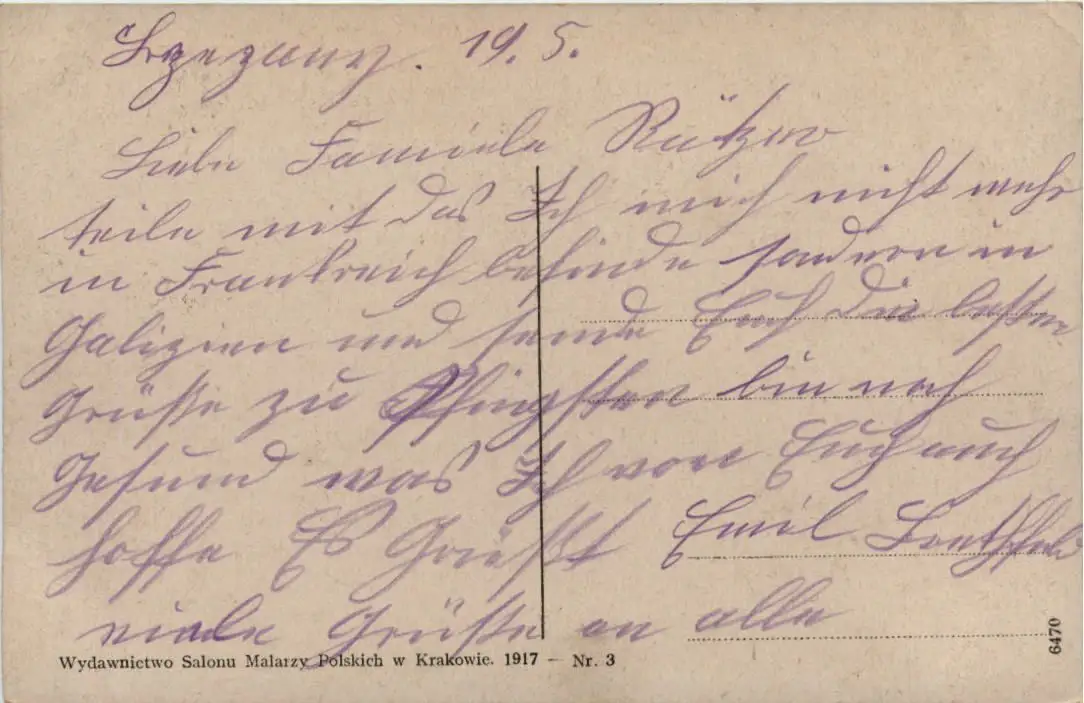 Brzezany. 19. 5.
Liebe Famiele
teile mit das Ich mich nicht mehr
in Frankreich befinde sondern in
Galizien und sende Euch die besten
Grüße zu Pfingsten bin noch
Gesund was Ich von Euch auch
hoffe Es Grüßt Emil
viele Grüße an alle
Wydawnictwo Salonu Malarzy Polskich w Krakowie. 1917 — Nr. 3
6470